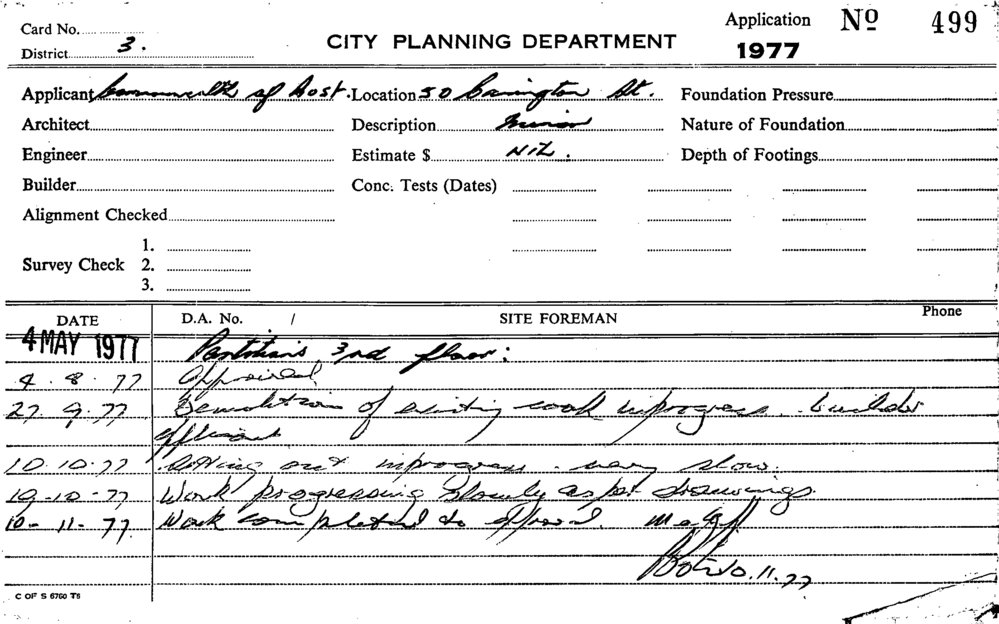 Card No.
District 3.
CITY PLANNING DEPARTMENT
Application Nº 499
1977
Applicant Commonwealth of Aost. Location 50 Carrington St. Foundation Pressure
Architect Description Minor Nature of Foundation
Engineer Estimate $ NIL. Depth of Footings
Builder Conc. Tests (Dates)
Alignment Checked
1.
Survey Check 2.
3.
DATE D.A. No. / SITE FOREMAN Phone
4 MAY 1977 Partitions 3rd floor:
4.8.77 Approved
27.9.77 Demolition of existing work inprogress. builder
10.10.77 setting out inprogress. very slow.
19-10-77 Work progressing slowly as per drawings.
10-11-77. Work completed to
10.11.77
C OF S 6760 T6